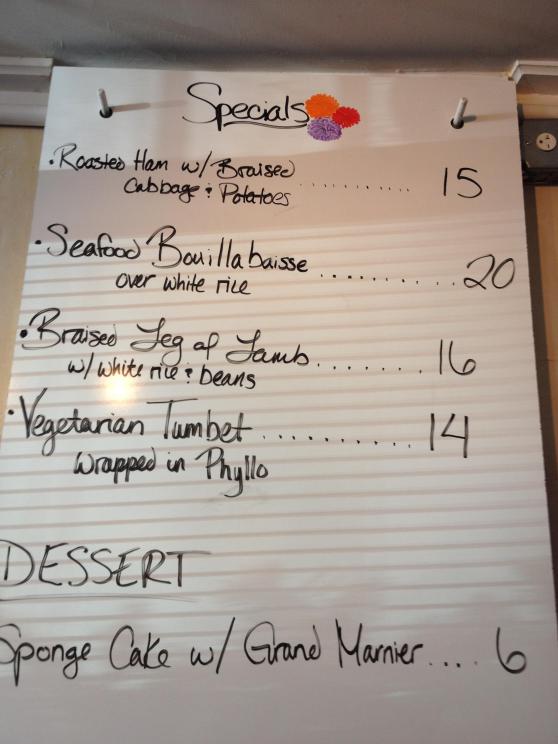 Specials
• Roasted Ham w/ Braised
Cabbage & Potatoes .......... 15
• Seafood Bouillabaisse
over white rice .......... 20
• Braised Leg of Lamb ....... 16
w/ white rice & beans
• Vegetarian Tumbet .......... 14
wrapped in Phyllo
DESSERT
Sponge Cake w/ Grand Marnier .... 6